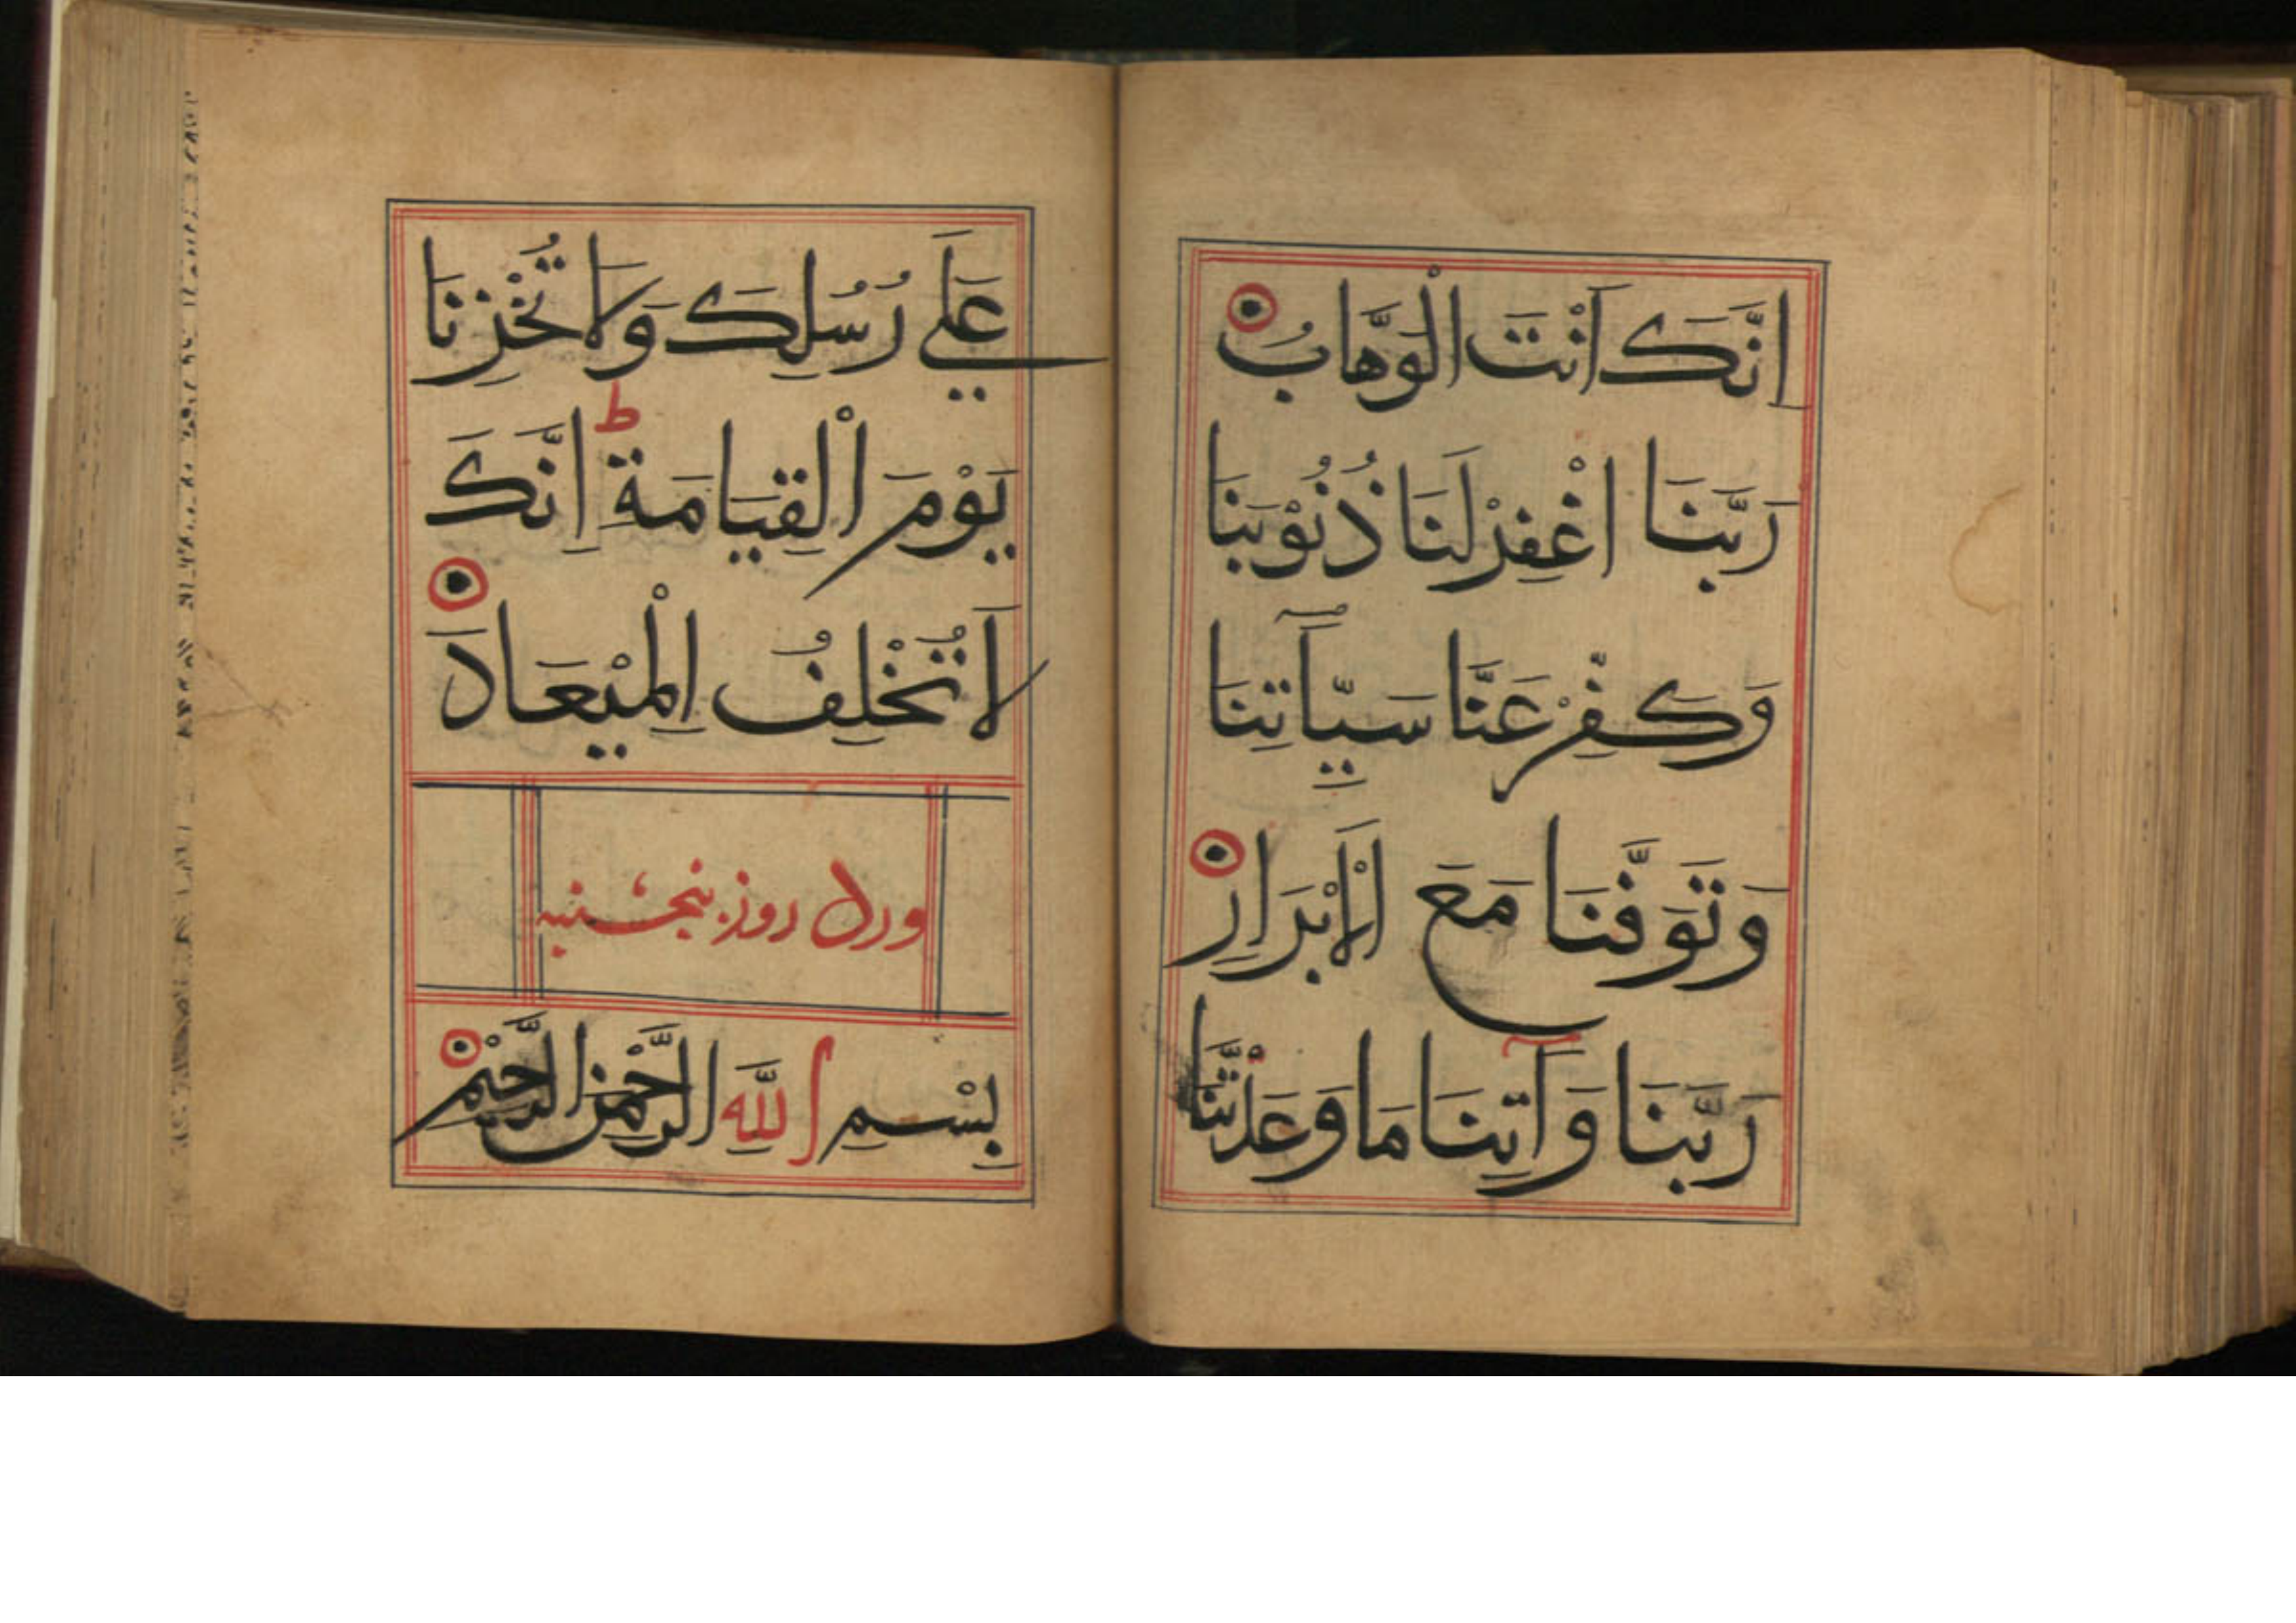 اِنَّكَ اَنْتَ الْوَهَّابُ
رَبَّنَا اغْفِرْ لَنَا ذُنُوْبَنَا
وَكَفِّرْ عَنَّا سَيِّاٰتِنَا
وَتَوَفَّنَا مَعَ الْاَبْرَارِ
رَبَّنَا وَاٰتِنَا مَا وَعَدْتَّنَا
عَلٰي رُسُلِكَ وَلَا تُخْزِنَا
يَوْمَ الْقِيَامَةِ ط اِنَّكَ
لَا تُخْلِفُ الْمِيْعَادَ
ورد روز پنجشنبه
بِسْمِ اللّٰهِ الرَّحْمٰنِ الرَّحِيْمِ